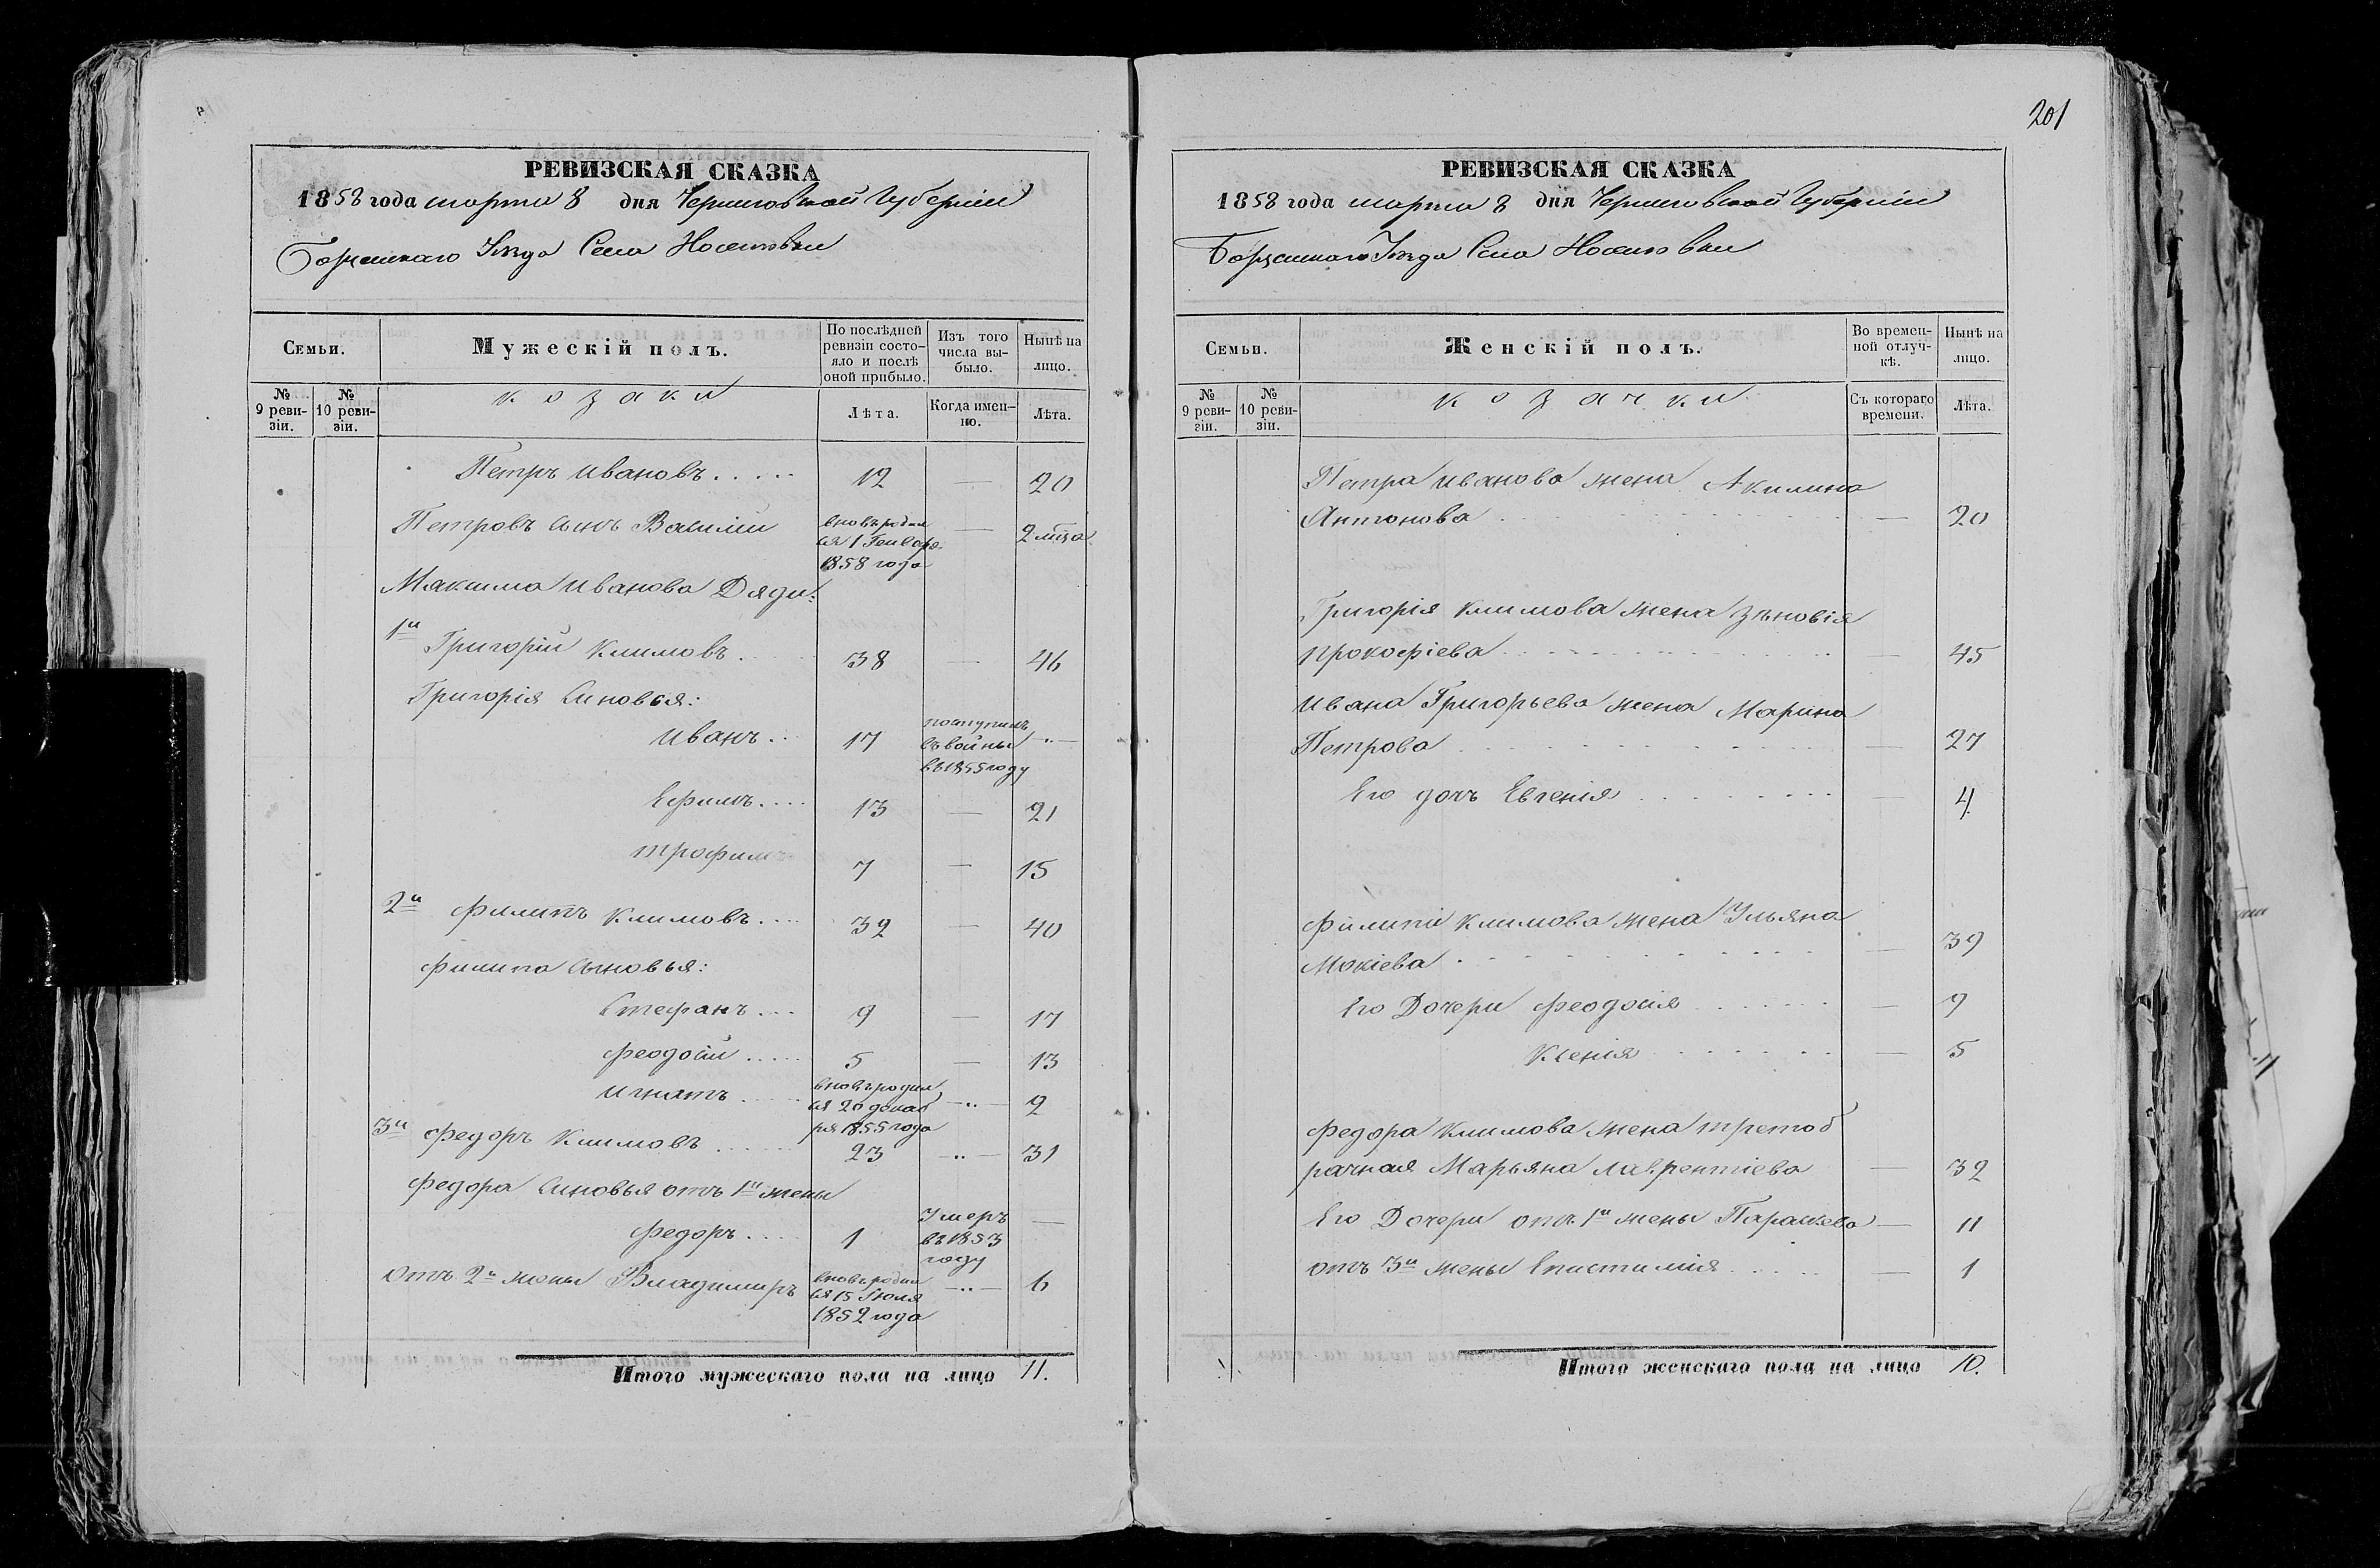 РЕВИЗСКАЯ СКАЗКА
1858 года марта 8 дня Черниговской Губерніи
Борзенскаго Уезда Села Носиловки
Семьи.
Мужескій полъ.
По послѣдней ревизіи состояло и послѣ оной прибыло.
Изъ того числа выбыло.
Нынѣ на лицо.
№ 9 ревизіи.
№ 10 ревизіи.
козаки
Лѣта.
Когда именно.
Лѣта.
Петръ Ивановъ 12 — 20
Петровъ сынъ Василій вновь родил
ся 1 Генваря — 2 мца
1858 года
Максима Иванова Дяди:
1й Григорій Климовъ 38 — 46
Григорія Синовья:
Иванъ 17 поступилъ
въ войны
въ 1855 году
Ефимъ 13 — 21
Трофимъ 7 — 15
2й Филипъ Климовъ 32 — 40
Филипа Сыновья:
Стефанъ 9 — 17
Феодосій 5 — 13
Игнатъ вновь родил
ся 20 декаб — 2
ря 1855 года
3й Федоръ Климовъ 23 — 31
Федора Синовья отъ 1й жены
Федоръ 1 Умеръ —
въ 1853
году
Отъ 2й жены Владимиръ вновь родил
ся 15 Іюля — 6
1852 года
Итого мужескаго пола на лицо 11.
201
РЕВИЗСКАЯ СКАЗКА
1858 года марта 8 дня Черниговской Губерніи
Борзенскаго Уезда Села Носиловки
Семьи.
Женскій полъ.
Во временной отлучкѣ.
Нынѣ на лицо.
№ 9 ревизіи.
№ 10 ревизіи.
козачки
Съ котораго времени.
Лѣта.
Петра Иванова жена Акилина
Антонова — 20
Григорія Климова жена Зѣновія
Прокофіева — 45
Ивана Григорьева жена Марина
Петрова — 27
Его дочь Евгенія — 4
Филипа Климова жена Ульяна
Мокіева — 39
Его Дочери Феодосія — 9
Ксенія — 5
Федора Климова жена третоб
рачная Марьяна Лаврентіева — 32
Его Дочери отъ 1й жены Параскева — 11
отъ 3й жены Епистимія — 1
Итого женскаго пола на лицо 10.